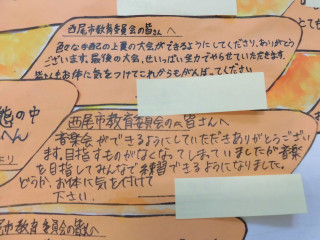 西尾市教育委員会の皆さんへ
の上夏の大会ができるようにしてくださり、ありがとう
ございます。最後の大会、せいいっぱい全力でやらせていただきます。
お体に気をつけてこれからもがんばってください
の中
へん
西尾市教育委員会の皆さんへ
音楽会ができるようにしていただきありがとうござい
ます。目指すものがなくなってしまっていましたが音楽
を目指してみんなで練習できるようになりました。
どうか、お体に気を付けて
下さい。
西尾市教育委員会の皆さんへ